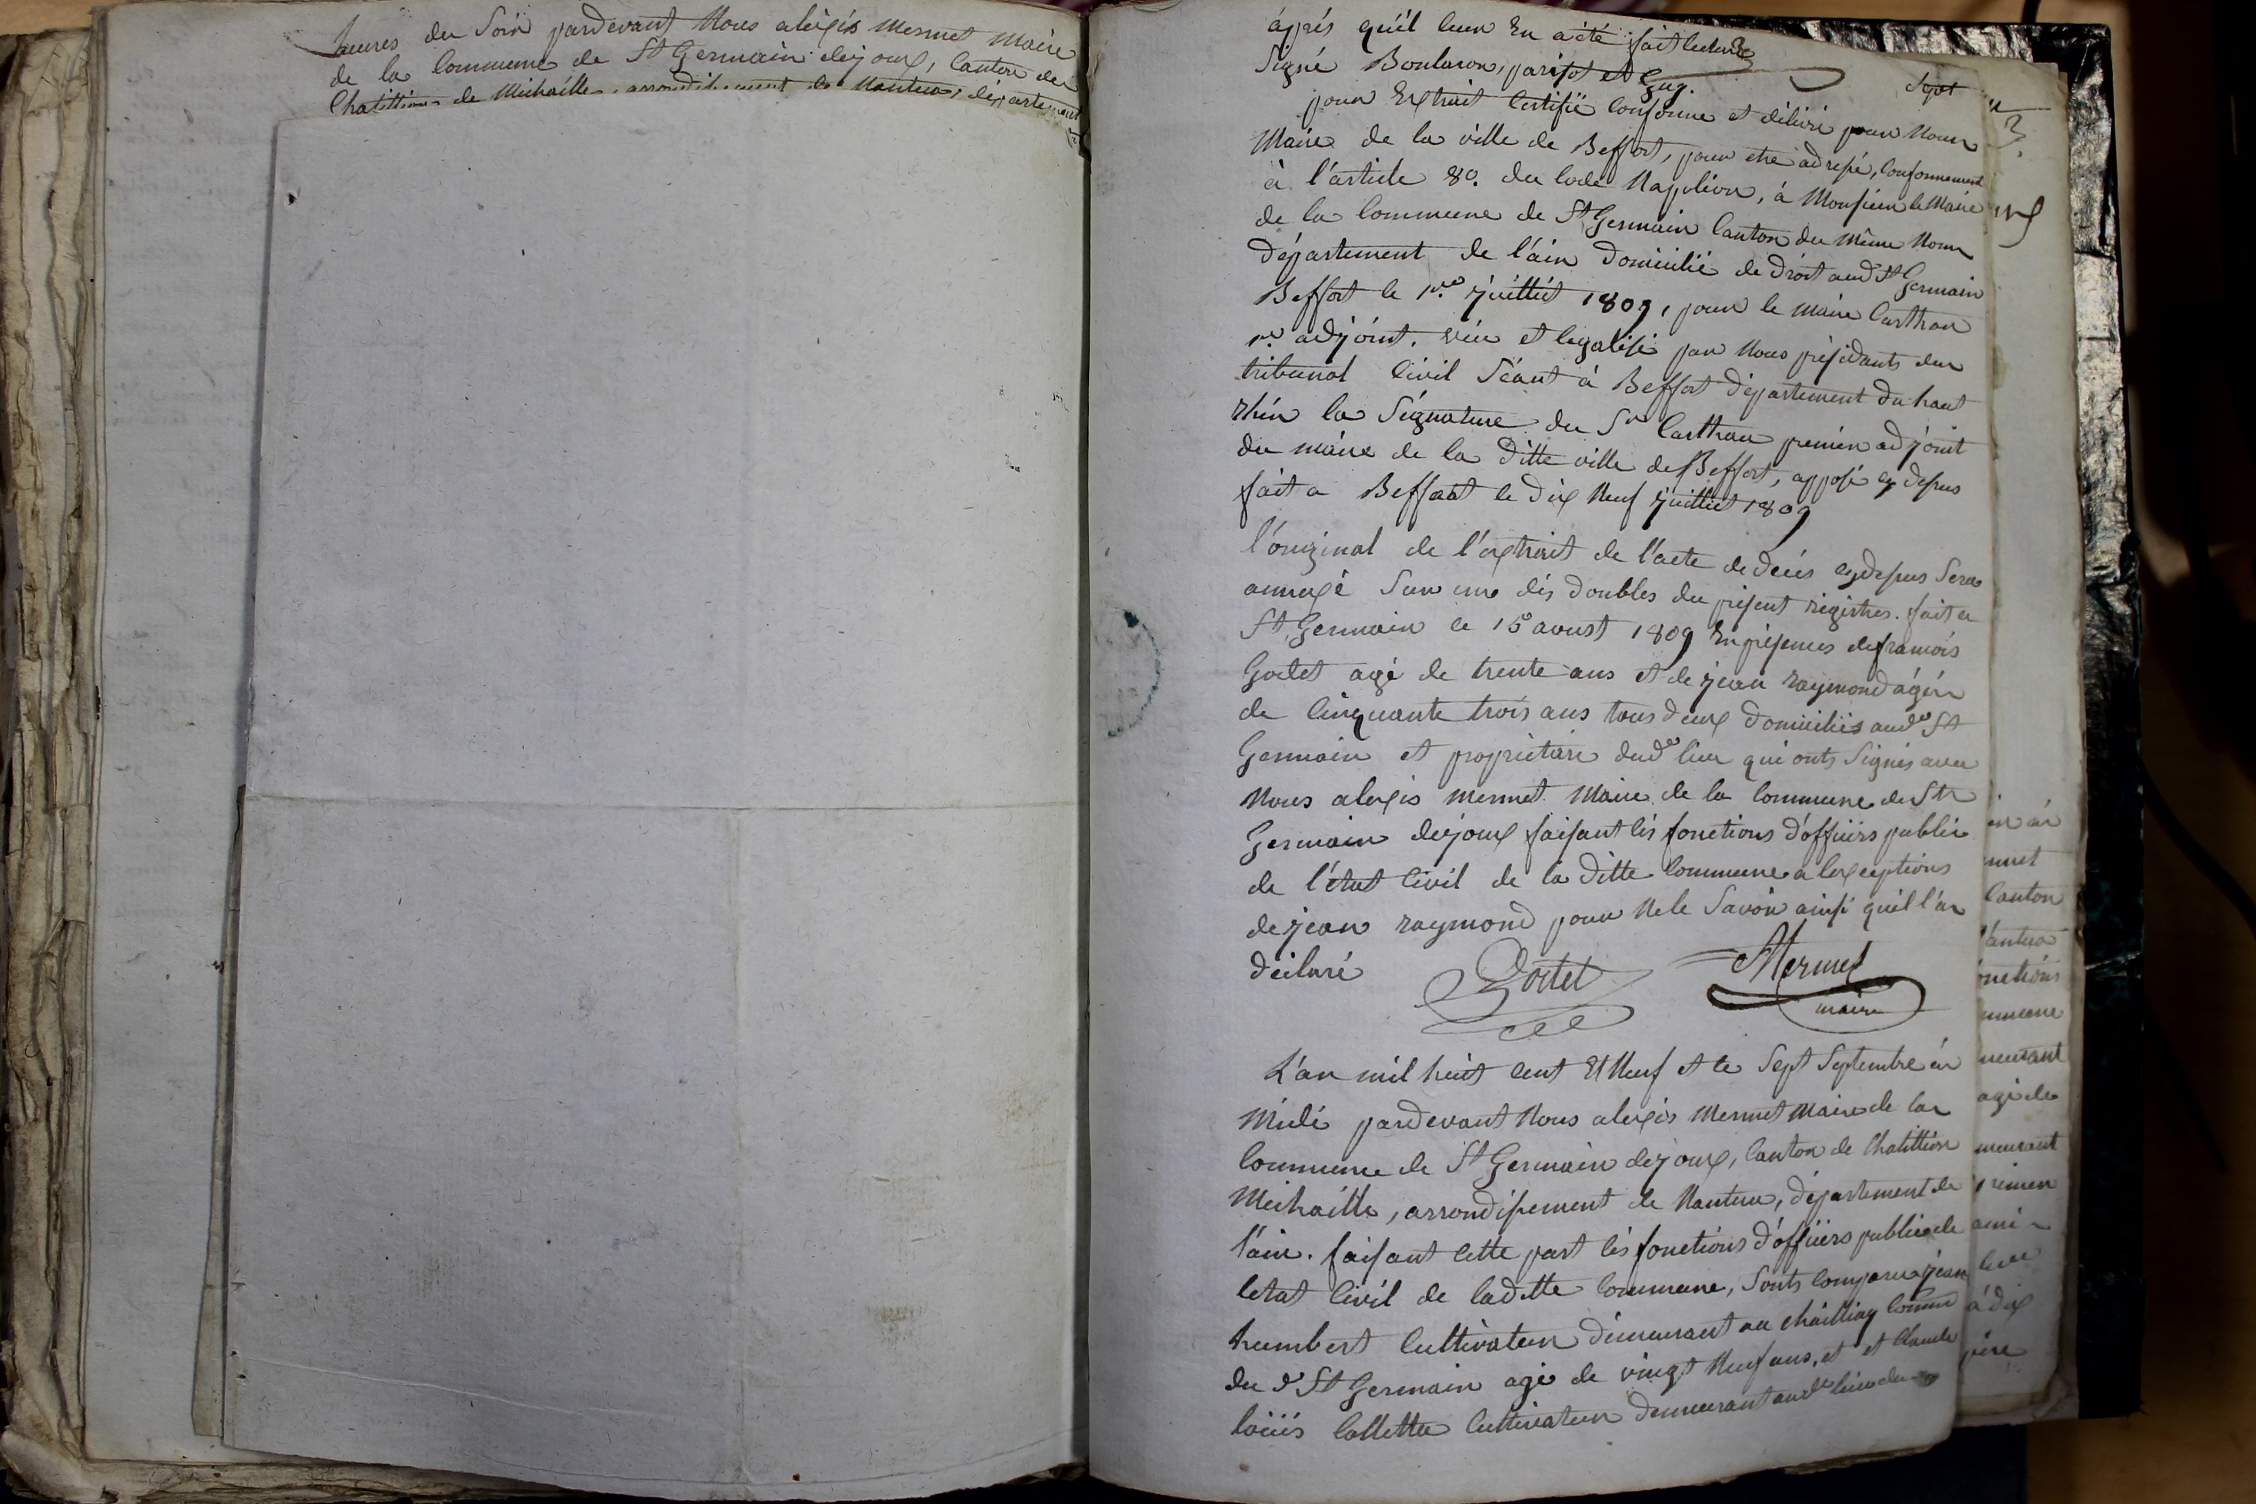 heures du Soir pardevant Nous alexis Mermet Maire
de la Commune de St Germain dejoux, Canton de
Chatillion de Michaille, arrondissement de Nantua, département
âpprés qu'il leur En a été fait lecture
Signé Boularon, parisot et
Sept
pour Extrait Certifié Conforme et délivré pour Nous
Maire de la ville de Beffort, pour etre adressé, Conformement
à l'article 80. du Code Napoléon, á Monsieur le Maire
de la Commune de St Germain Canton du Même Nom
département de l'ain domicilié de droit aud St Germain
Beffort le 1re juilliet 1809, pour le Maire
1re adjoint. vüe et legalisé par Nous présidants du
tribunal Civil Séant á Beffort département du haut
rhin la Signature du Sr premier adjoint
du maire de la ditte ville de Beffort, apposé cy dessus
fait a Beffort le dix Neuf juilliet 1809
l'original de l'extrait de l'acte de décés cydessus Sera
annexé Sur une dés doubles du présent régistres. fait a
St Germain le 15 avust 1809 En présences de francois
Godet agé de trente ans et de jean raymond ágé
de Cinquante trois ans tous deux domiciliés aud St
Germain et propriétaire dud lieu qui onts Signés avec
Nous alexis Mermet Maire de la Commune de St
Germain dejoux faisant lés fonctions d'officiérs public
de l'état Civil de la ditte Commune a lexceptions
de jean raymond pour Ne le Savoir ainsi quil l'a
déclaré
Godet Mermet
maire
L'an mil huit cent Et Neuf et le Sept Septembre á
Midi pardevant Nous alexis Mermet Maire de la
Commune de St Germain dejoux, Canton de Chatillion
Michaille, arrondissement de Nantua, département de
l'ain. faisant Cette part lés fonctions d'officiérs public de
letat Civil de laditte Commune, Sonts Comparu jean
humbert Cultivateur démeurant au Commune
du d St Germain agé de vingt Neuf ans, et et Claude
loüis Collettaz Cultivateur demeurant aud lieu du
Canton